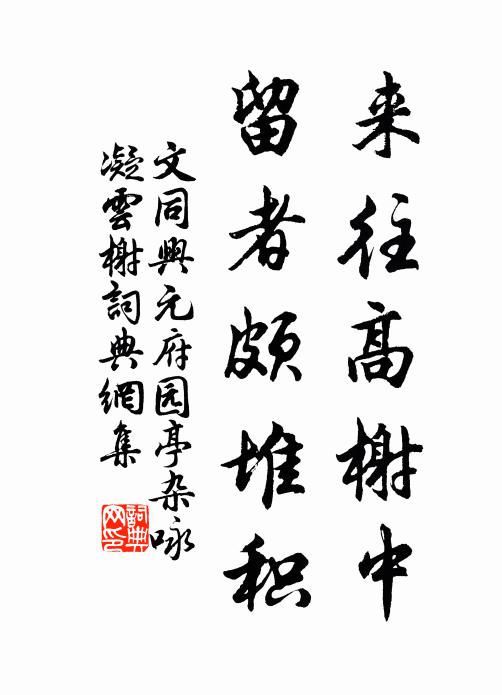 来往高榭中
留者颇堆积
文同興元府园亭杂咏
凝雲榭詞典網集
詞典网印